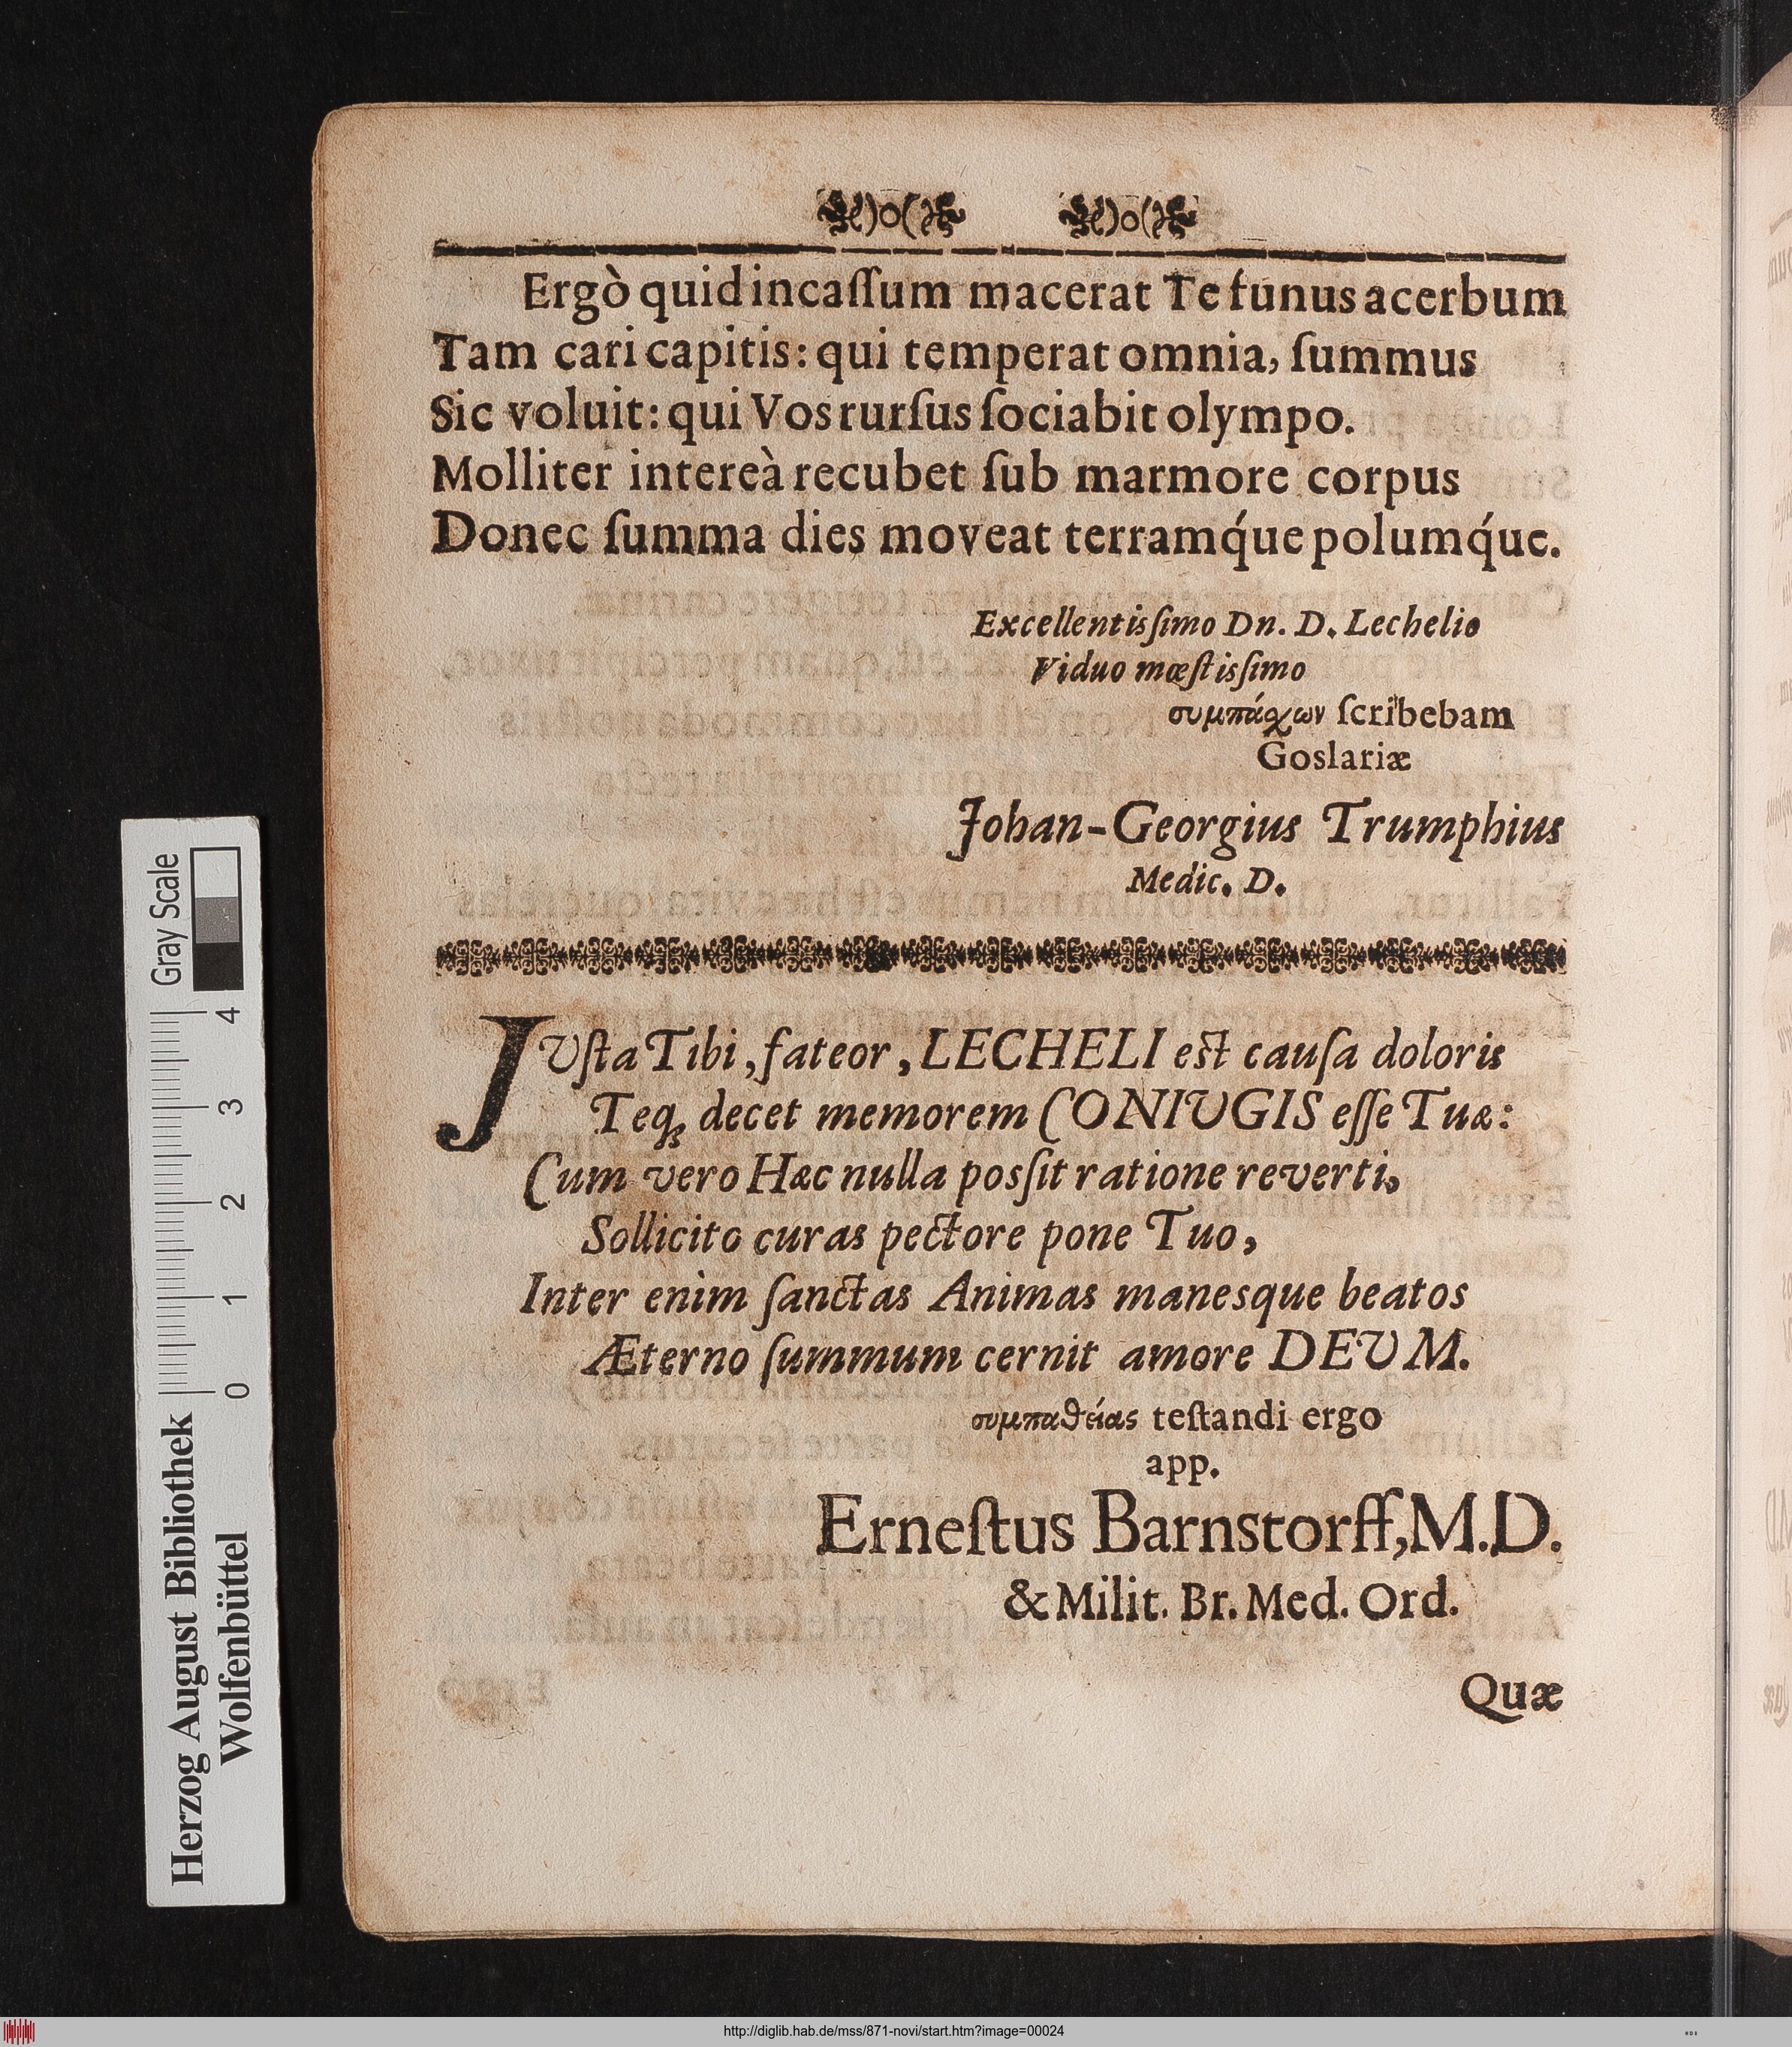 )o( )o(
Ergò quid incaſſum macerat Te funus acerbum
Tam cari capitis: qui temperat omnia, ſummus
Sic voluit: qui Vos rurſus ſociabit olympo.
Molliter intereà recubet ſub marmore corpus
Donec ſumma dies moveat terramq́ue polumq́ue.
Excellentisſimo Dn. D. Lechelio
Viduo mœſtisſimo
συμπάχων ſcribebam
Goslariæ
Johan-Georgius Trumphius
Medic. D.
JUſta Tibi, fateor, LECHELI est cauſa doloris
Teqꝫ decet memorem CONIUGIS eſſe Tuæ:
Cum vero Hæc nulla posſit ratione reverti,
Sollicito curas pectore pone Tuo,
Inter enim ſanctas Animas manesque beatos
Æterno ſummum cernit amore DEUM.
συμπαθείας teſtandi ergo
app.
Erneſtus Barnstorff, M.D.
& Milit. Br. Med. Ord.
Quæ
Herzog August Bibliothek
Wolfenbüttel
0 1 2 3 4
Gray Scale
http://diglib.hab.de/mss/871-novi/start.htm?image=00024